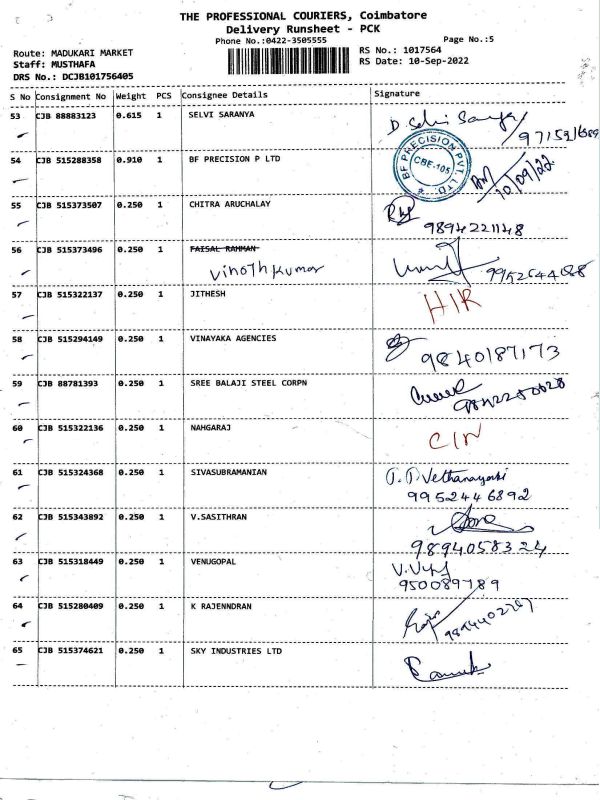 THE PROFESSIONAL COURIERS, Coimbatore
Delivery Runsheet - PCK
Phone No.:0422-3505555
Page No.:5
Route: MADUKARI MARKET
Staff: MUSTHAFA
DRS No.: DCJB101756405
RS No.: 1017564
RS Date: 10-Sep-2022
S No Consignment No Weight PCS Consignee Details Signature
53 CJB 88883123 0.615 1 SELVI SARANYA D. Selvi
54 CJB 515288358 0.910 1 BF PRECISION P LTD
BF PRECISION PVT. LTD.
CBE-105
10/09/22
55 CJB 515373507 0.250 1 CHITRA ARUCHALAY
9894221148
56 CJB 515373496 0.250 1 FAISAL RAHMAN
Vinothkumar
57 CJB 515322137 0.250 1 JITHESH HIR
58 CJB 515294149 0.250 1 VINAYAKA AGENCIES
9840187173
59 CJB 88781393 0.250 1 SREE BALAJI STEEL CORPN
60 CJB 515322136 0.250 1 NAHGARAJ CIN
61 CJB 515324368 0.250 1 SIVASUBRAMANIAN
9952446892
62 CJB 515343892 0.250 1 V.SASITHRAN
9894058324
63 CJB 515318449 0.250 1 VENUGOPAL
950089789
64 CJB 515280409 0.250 1 K RAJENNDRAN
65 CJB 515374621 0.250 1 SKY INDUSTRIES LTD